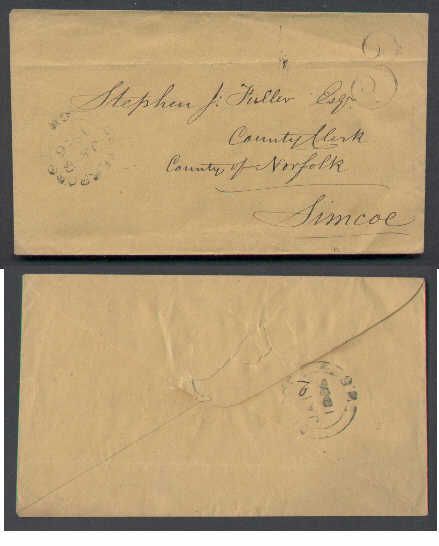 Stephen J: Fuller Esqr
County Clerk
County of Norfolk
Simcoe
3